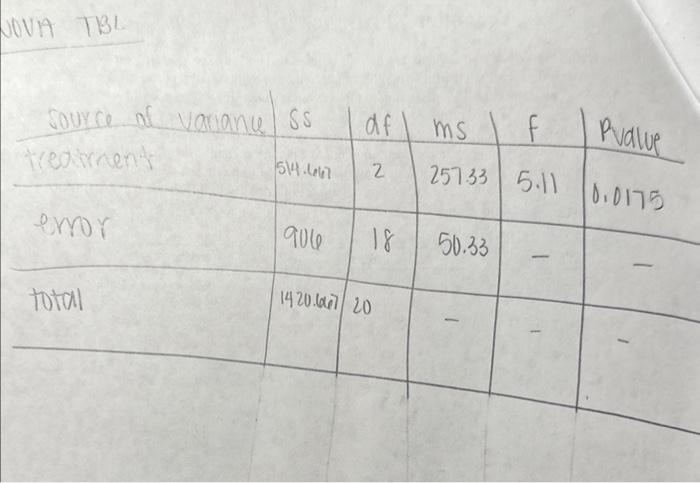 NOVA TBL
source of variance ss df ms f Pvalue
treatment 514.667 2 257.33 5.11 0.0175
error 906 18 50.33 – –
total 1420.667 20 – – –